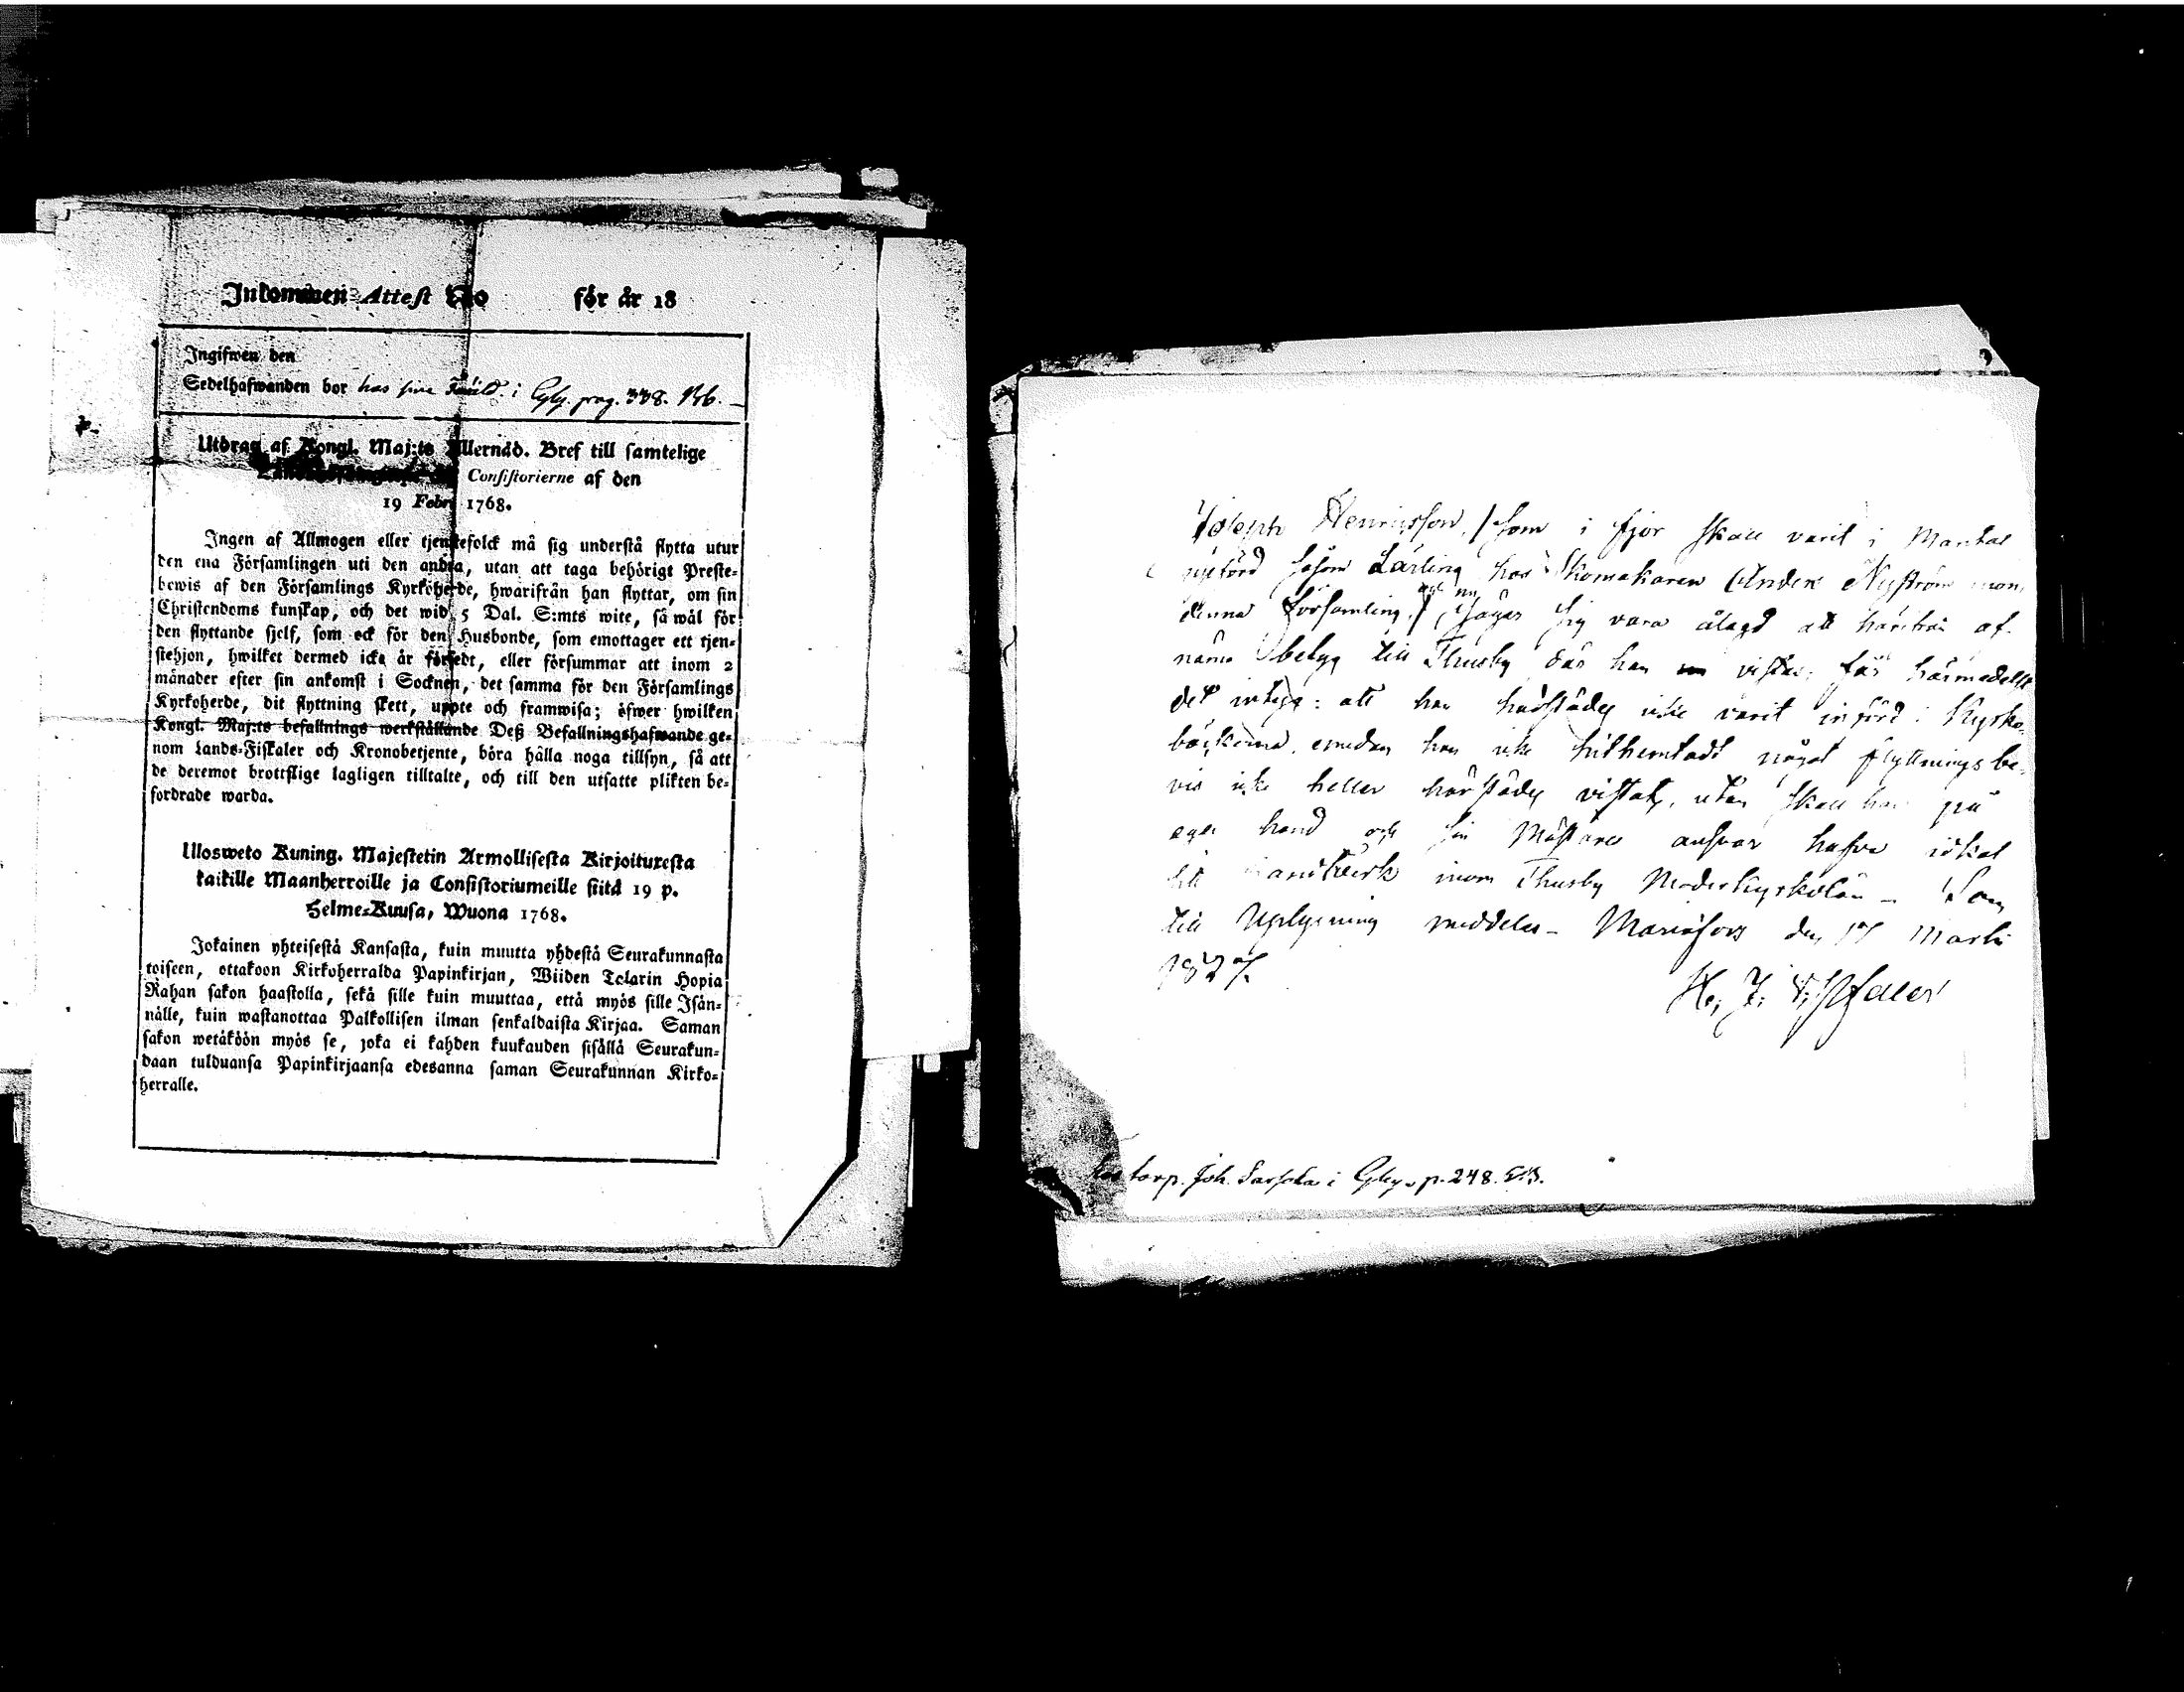 Inkommen Attest No för år 18
Ingifwen den
Sedelhafwanden bor hos sine i Gyly. pag. 338.
Utdrag af Kongl. Maj:ts Allernåd. Bref till samtelige
Consistorierne af den
19 Febr. 1768.
Ingen af Allmogen eller tjenstefolck må sig understå flytta utur
den ena Församlingen uti den andra, utan att taga behörigt Preste-
bewis af den Församlings Kyrkoherde, hwarifrån han flyttar, om sin
Christendoms kunskap, och det wid 5 Dal. S:mts wite, så wäl för
den flyttande sjelf, som ock för den Husbonde, som emottager ett tjen-
stehjon, hwilket dermed icke är försedt, eller försummar att inom 2
månader efter sin ankomst i Socknen, det samma för den Församlings
Kyrkoherde, dit flyttning skett, uppte och framwisa; öfwer hwilken
Kongl. Maj:ts befallnings werkställande Deß Befallningshafwande ge-
nom Lands-Fiskaler och Kronobetjente, böra hålla noga tillsyn, så att
de deremot brottslige lagligen tilltalte, och till den utsatte plikten be-
fordrade warda.
Ulosweto Kuning. Majestetin Armollisesta Kirjoituxesta
kaikille Maanherroille ja Consistoriumeille siitä 19 p.
Helme-Kuusa, Wuona 1768.
Jokainen yhteisestä Kansasta, kuin muutta yhdestä Seurakunnasta
toiseen, ottakoon Kirkoherralda Papinkirjan, Wiiden Talarin Hopia
Rahan sakon haastolla, sekä sille kuin muuttaa, että myös sille Isän-
nälle, kuin wastanottaa Palkollisen ilman senkaldaista Kirjaa. Saman
sakon wetäköön myös se, joka ei kahden kuukauden sisällä Seurakun-
daan tulduansa Papinkirjaansa edesanna saman Seurakunnan Kirko-
herralle.
Joseph Henricsson, /som i fjor skall varit i Mantal
införd såsom Lärling hos Skomakaren Anders Nyström inom
denna församling,/ och nu säger sig vara ålagd att härifrån af-
nämna betyg till Thusby där han vistas, får härmedelst
det intyga: att han härstädes icke varit införd i Kyrko-
böckerna, emedan han icke hithemtadt något flyttningsbe-
vis icke heller härstädes vistats, utan skall han på
egen hand och sin Mästares ansvar hafva idkat
sitt Handtverk inom Thusby Moderkyrkolän - Som
till Uplysning meddelas - Mariefors den 17 Martii
1827.
H. J.
torp. Joh. i Gyly. p. 248.